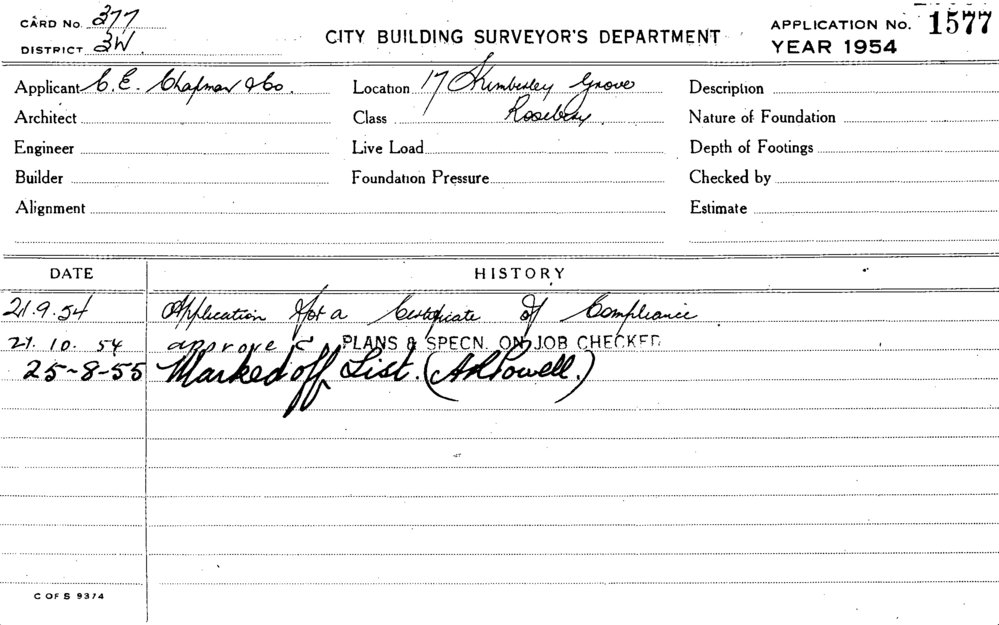 CARD No. 377
DISTRICT 3W.
CITY BUILDING SURVEYOR'S DEPARTMENT
APPLICATION No. 1577
YEAR 1954
Applicant C. E. Chapman & Co.
Location 17 Kimberley Grove
Rosebery
Description
Architect
Class
Nature of Foundation
Engineer
Live Load
Depth of Footings
Builder
Foundation Pressure
Checked by
Alignment
Estimate
DATE HISTORY
21.9.54 Application for a Certificate of Compliance
21. 10. 54 approve PLANS & SPECN. ON JOB CHECKED
25-8-55 Marked off List. (A Powell.)
C OF S 9374